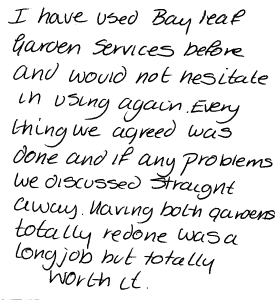 I have used Bay leaf
Garden Services before
and would not hesitate
in using again. Every
thing we agreed was
done and if any problems
we discussed straight
away. Having both gardens
totally redone was a
long job but totally
worth it.